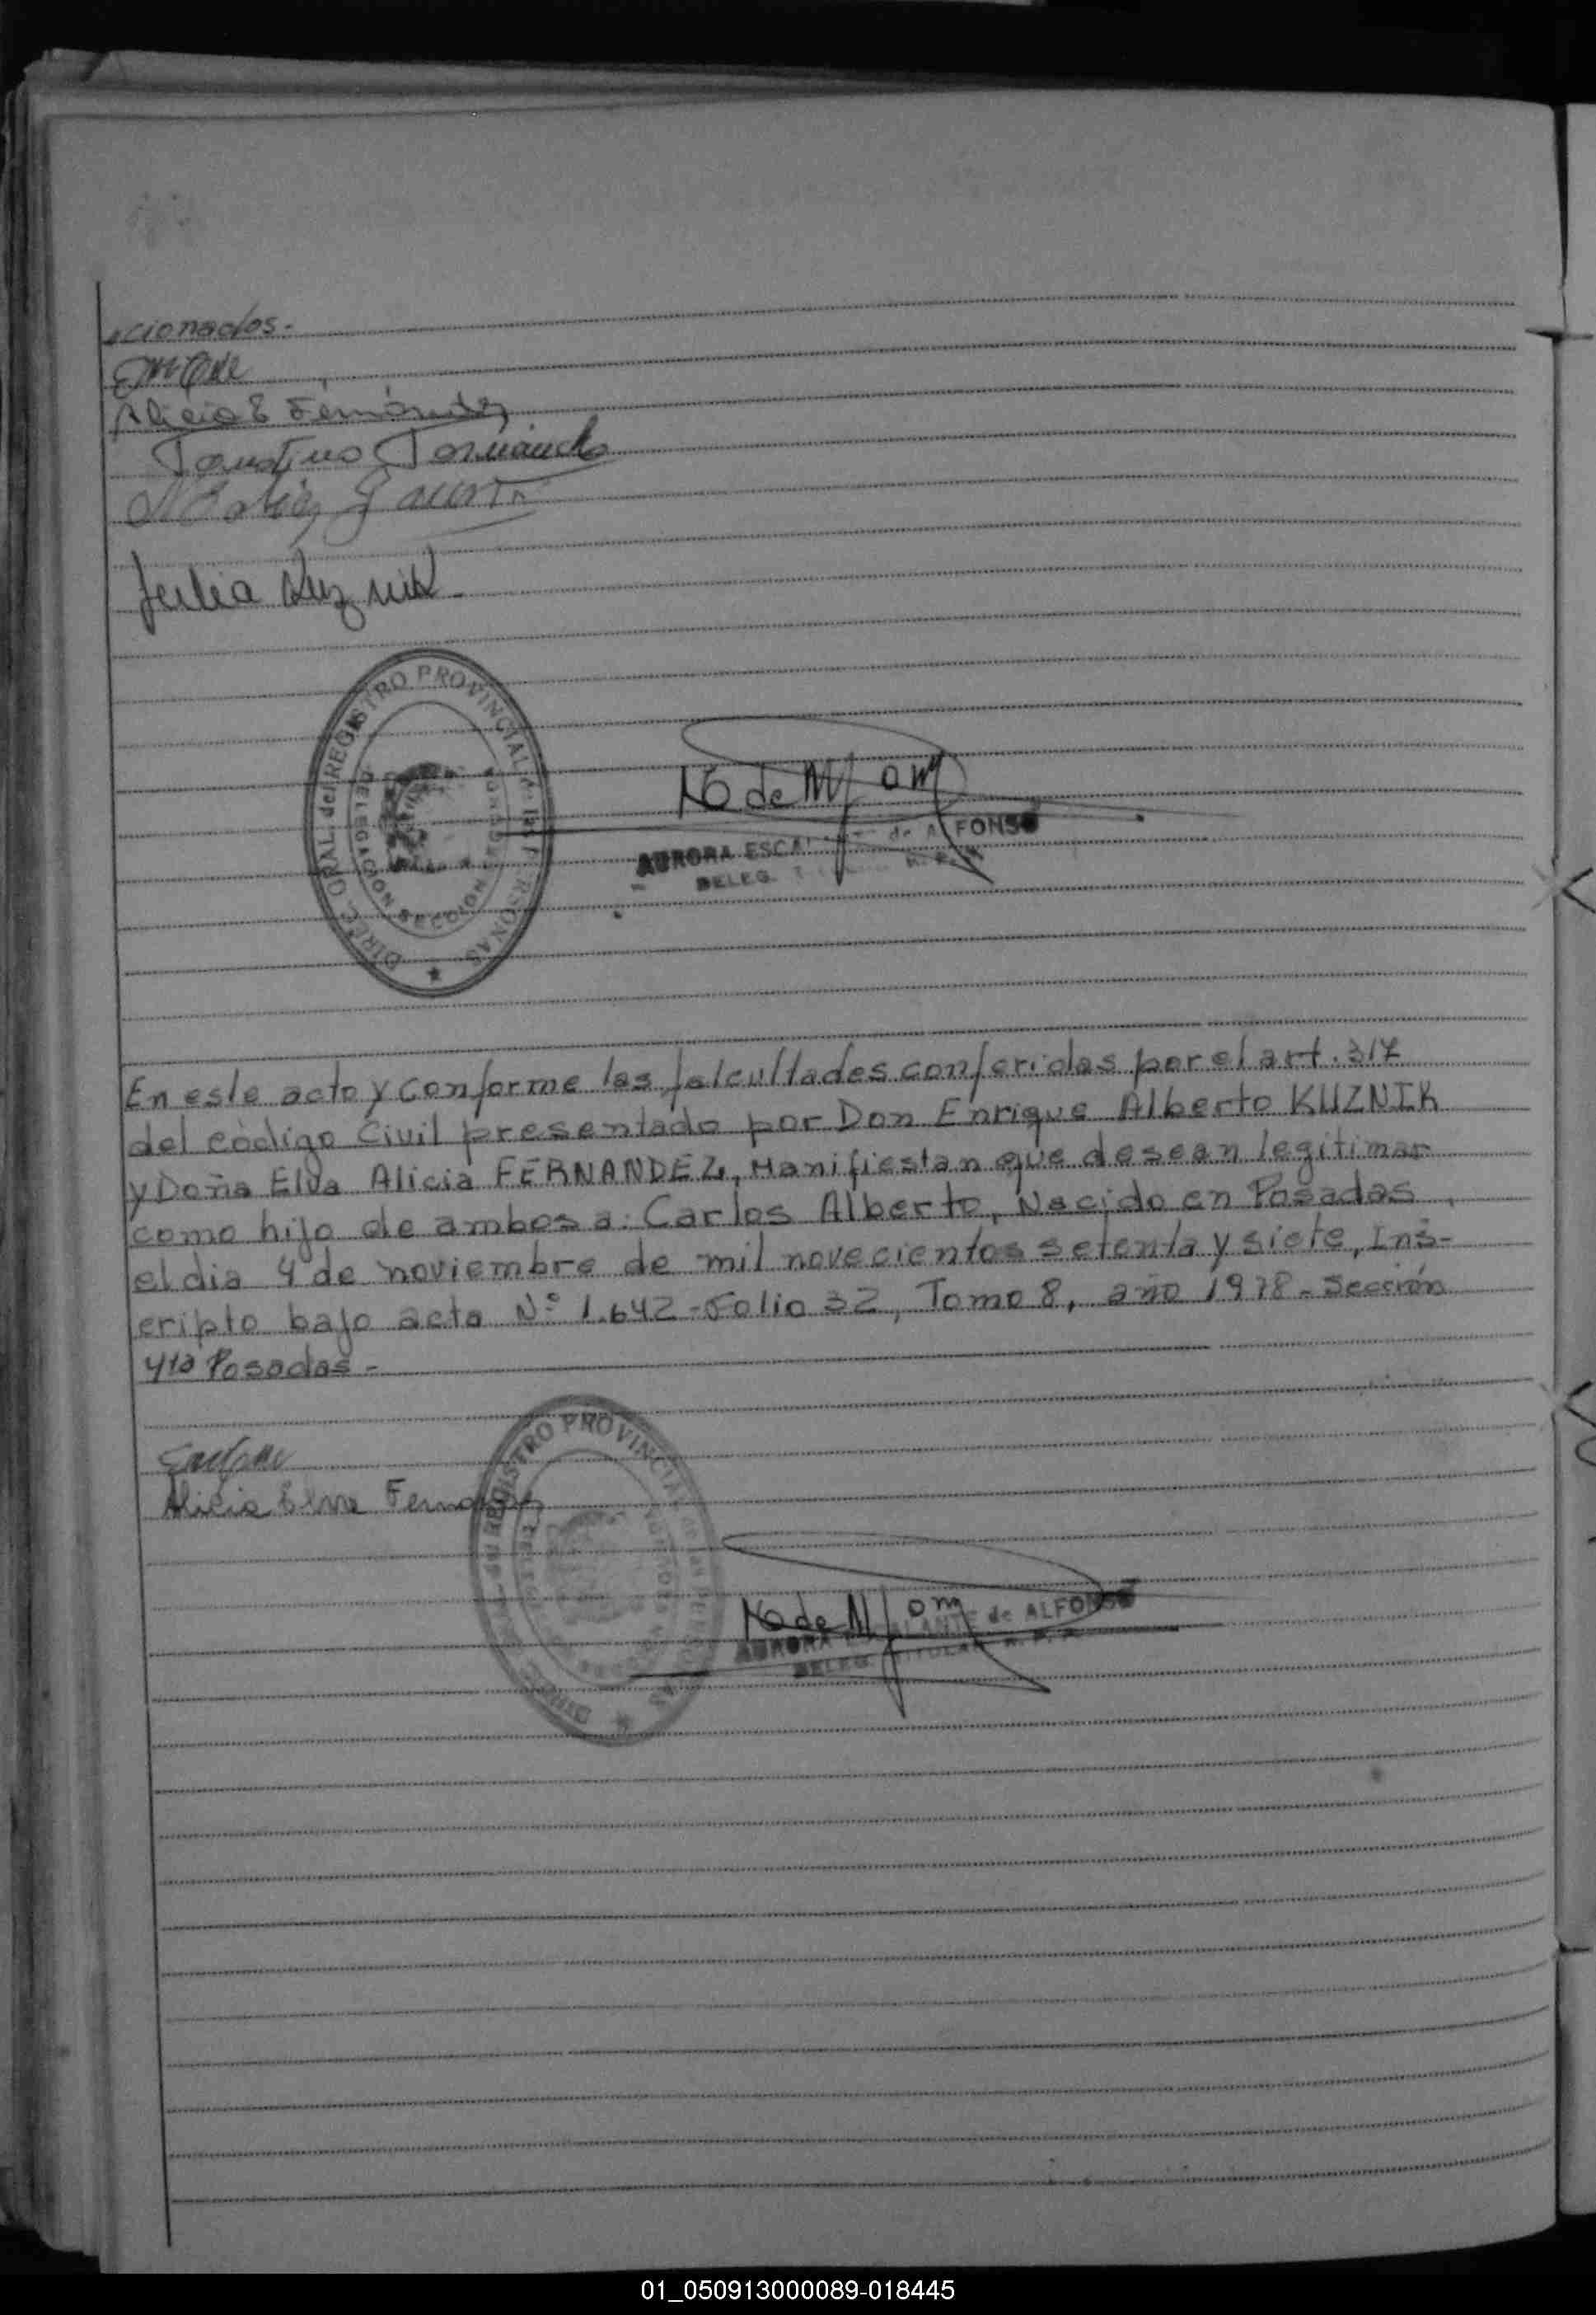 cionados.-
Alicia E Fernández
Julia Kuznik.-
DIREC. GRAL. del REGISTRO PROVINCIAL de las PERSONAS
DELEGACION SECCION
AURORA ESCALANTE de ALFONSO
DELEG. TITULAR R. P. P.
En este acto y conforme las falcultades conferidas por el art. 317
del código Civil presentado por Don Enrique Alberto KUZNIK
y Doña Elva Alicia FERNANDEZ, Manifiestan que desean legitimar
como hijo de ambos a: Carlos Alberto, Nacido en Posadas,
el dia 4 de noviembre de mil novecientos setenta y siete, Ins-
cripto bajo acta Nº 1.642 - Folio 32, Tomo 8, año 1978 - Sección
4ta Posadas -
Alicia Elva Fernandez
DIREC. GRAL. del REGISTRO PROVINCIAL de las PERSONAS
AURORA ESCALANTE de ALFONSO
DELEG. TITULAR R. P. P.
01_050913000089-018445